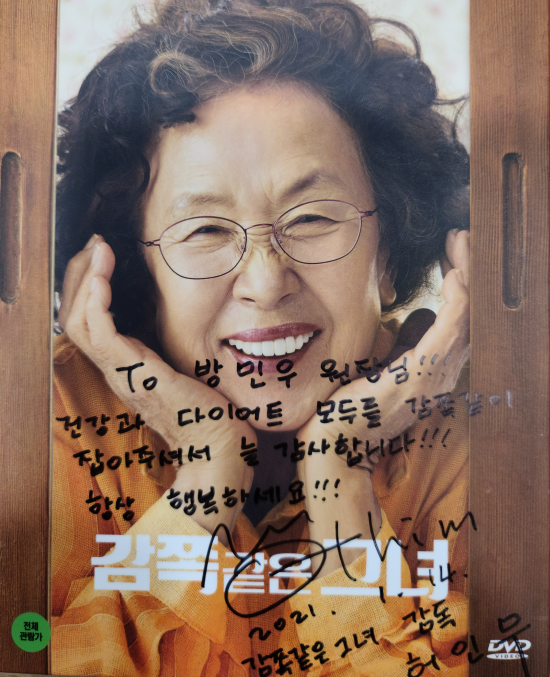 To 방민우 원장님!!!
건강과 다이어트 모두를 감쪽같이
잡아주셔서 늘 감사합니다!!!
항상 행복하세요!!!
감쪽같은 그녀
2021. 1. 14.
감쪽같은 그녀 감독
허인무
전체
관람가
DVD
VIDEO